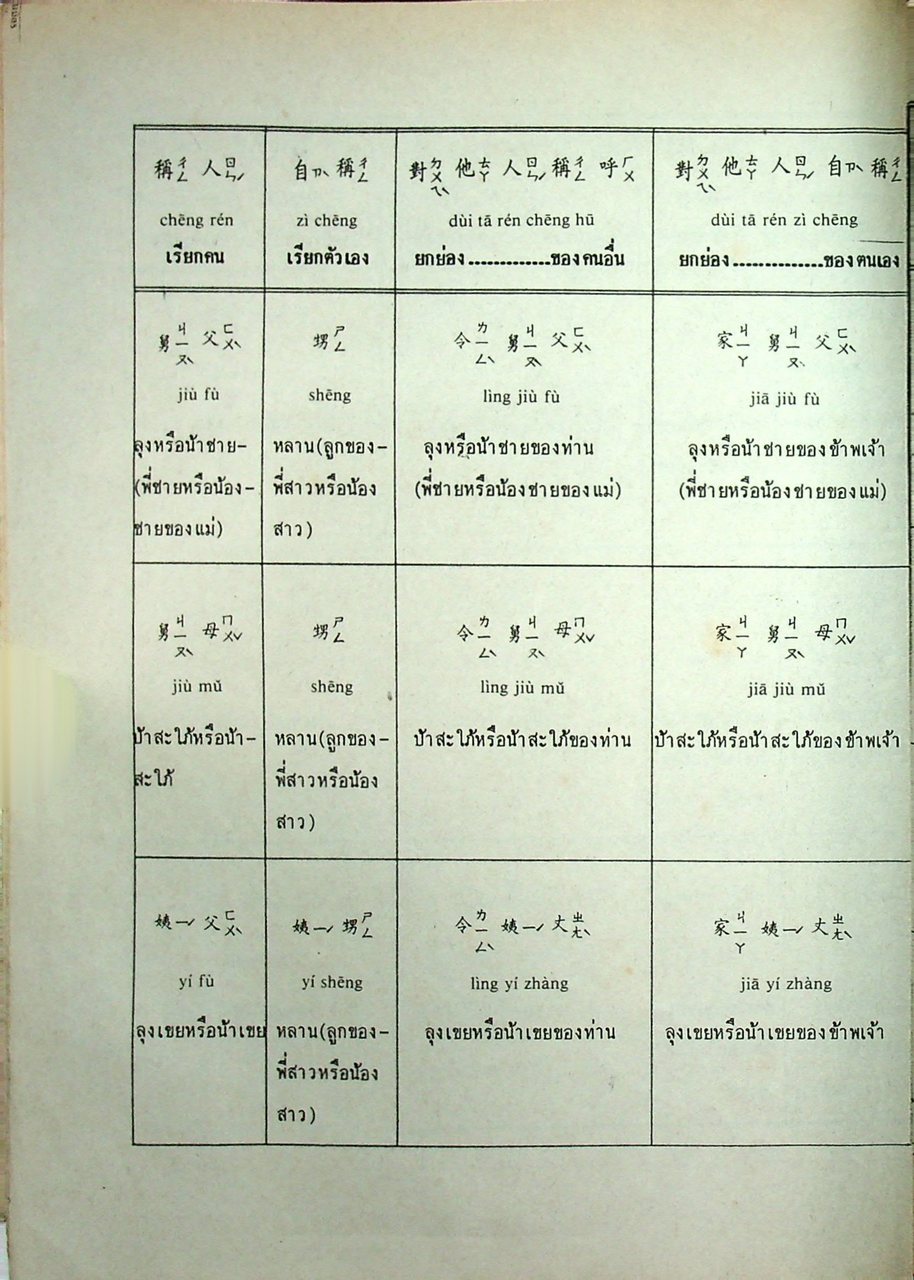 稱ㄔㄥ 人ㄖㄣˊ
chēng rén
เรียกคน
自ㄗˋ 稱ㄔㄥ
zì chēng
เรียกตัวเอง
對ㄉㄨㄟˋ 他ㄊㄚ 人ㄖㄣˊ 稱ㄔㄥ 呼ㄏㄨ
dùi tā rén chēng hū
ยกย่อง..............ของคนอื่น
對ㄉㄨㄟˋ 他ㄊㄚ 人ㄖㄣˊ 自ㄗˋ 稱ㄔㄥ
dùi tā rén zì chēng
ยกย่อง...............ของตนเอง
舅ㄐㄧㄡˋ 父ㄈㄨˋ
jiù fù
ลุงหรือน้าชาย-
(พี่ชายหรือน้อง-
ชายของแม่)
甥ㄕㄥ
shēng
หลาน(ลูกของ-
พี่สาวหรือน้อง
สาว)
令ㄌㄧㄥˋ 舅ㄐㄧㄡˋ 父ㄈㄨˋ
lìng jiù fù
ลุงหรือน้าชายของท่าน
(พี่ชายหรือน้องชายของแม่)
家ㄐㄧㄚ 舅ㄐㄧㄡˋ 父ㄈㄨˋ
jiā jiù fù
ลุงหรือน้าชายของข้าพเจ้า
(พี่ชายหรือน้องชายของแม่)
舅ㄐㄧㄡˋ 母ㄇㄨˇ
jiù mŭ
ป้าสะใภ้หรือน้า-
สะใภ้
甥ㄕㄥ
shēng
หลาน(ลูกของ-
พี่สาวหรือน้อง
สาว)
令ㄌㄧㄥˋ 舅ㄐㄧㄡˋ 母ㄇㄨˇ
lìng jiù mŭ
ป้าสะใภ้หรือน้าสะใภ้ของท่าน
家ㄐㄧㄚ 舅ㄐㄧㄡˋ 母ㄇㄨˇ
jiā jiù mŭ
ป้าสะใภ้หรือน้าสะใภ้ของข้าพเจ้า
姨ㄧˊ 父ㄈㄨˋ
yí fù
ลุงเขยหรือน้าเขย
姨ㄧˊ 甥ㄕㄥ
yí shēng
หลาน(ลูกของ-
พี่สาวหรือน้อง
สาว)
令ㄌㄧㄥˋ 姨ㄧˊ 丈ㄓㄤˋ
lìng yí zhàng
ลุงเขยหรือน้าเขยของท่าน
家ㄐㄧㄚ 姨ㄧˊ 丈ㄓㄤˋ
jiā yí zhàng
ลุงเขยหรือน้าเขยของข้าพเจ้า